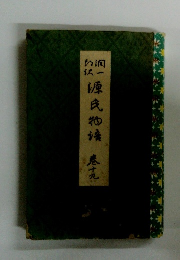 潤一郎訳
源氏物語
巻十九